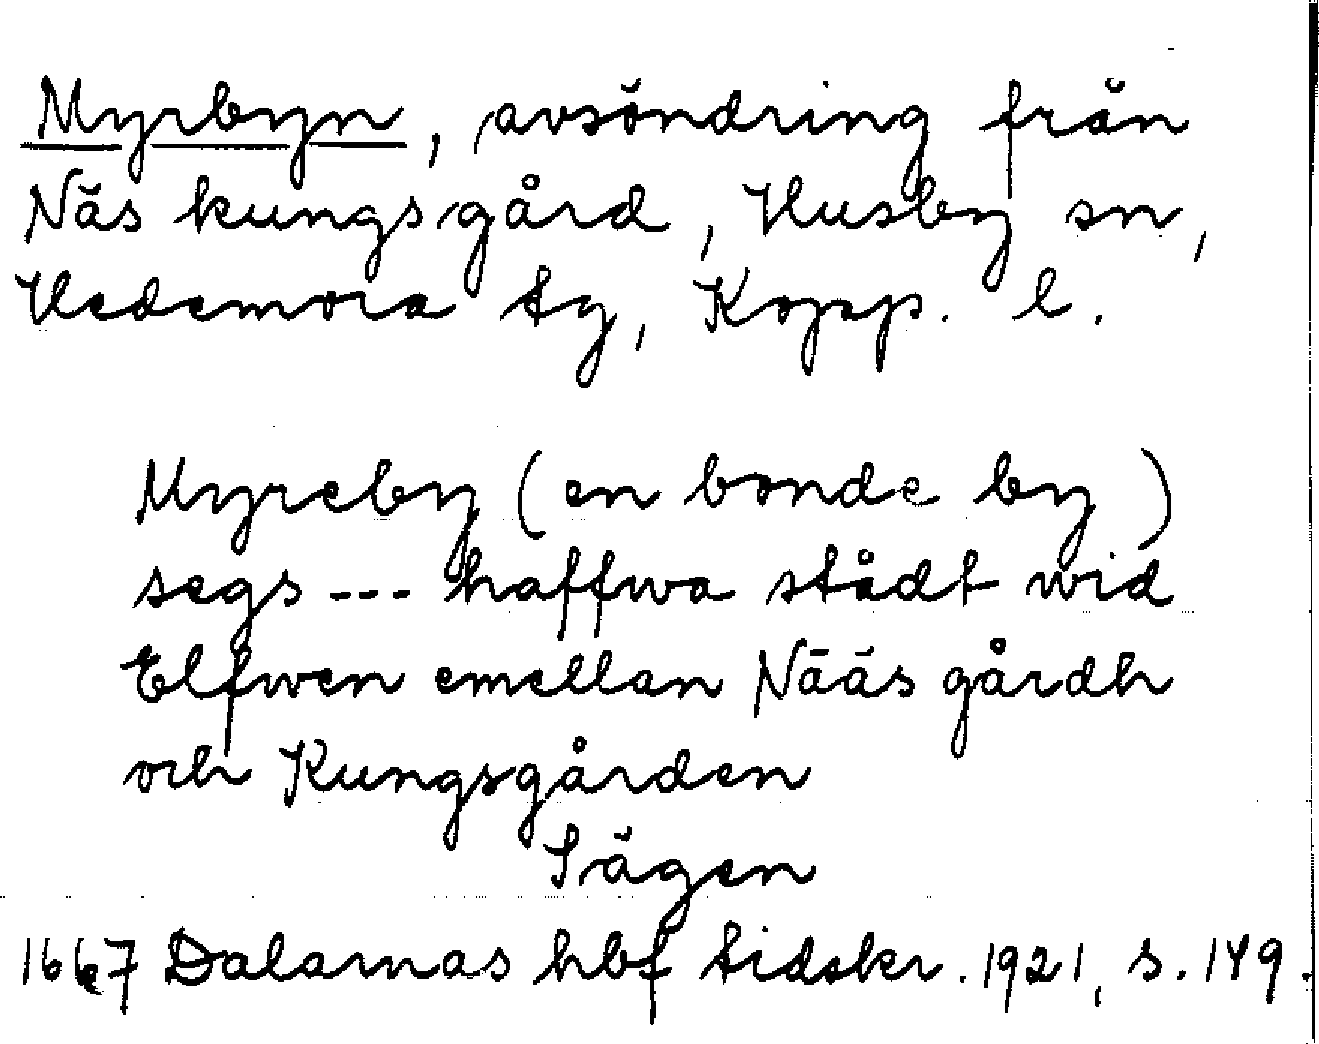 Myrbyn, avsöndring från
Näs kungsgård, Husby sn,
Hedemora tg, Kopp. l.
Myreby (en bonde by)
segs --- haffwa stådt wid
Elfwen emellan Nääs gårdh
och Kungsgården
Sägen
1667 Dalarnas hbf tidskr. 1921, s. 149.